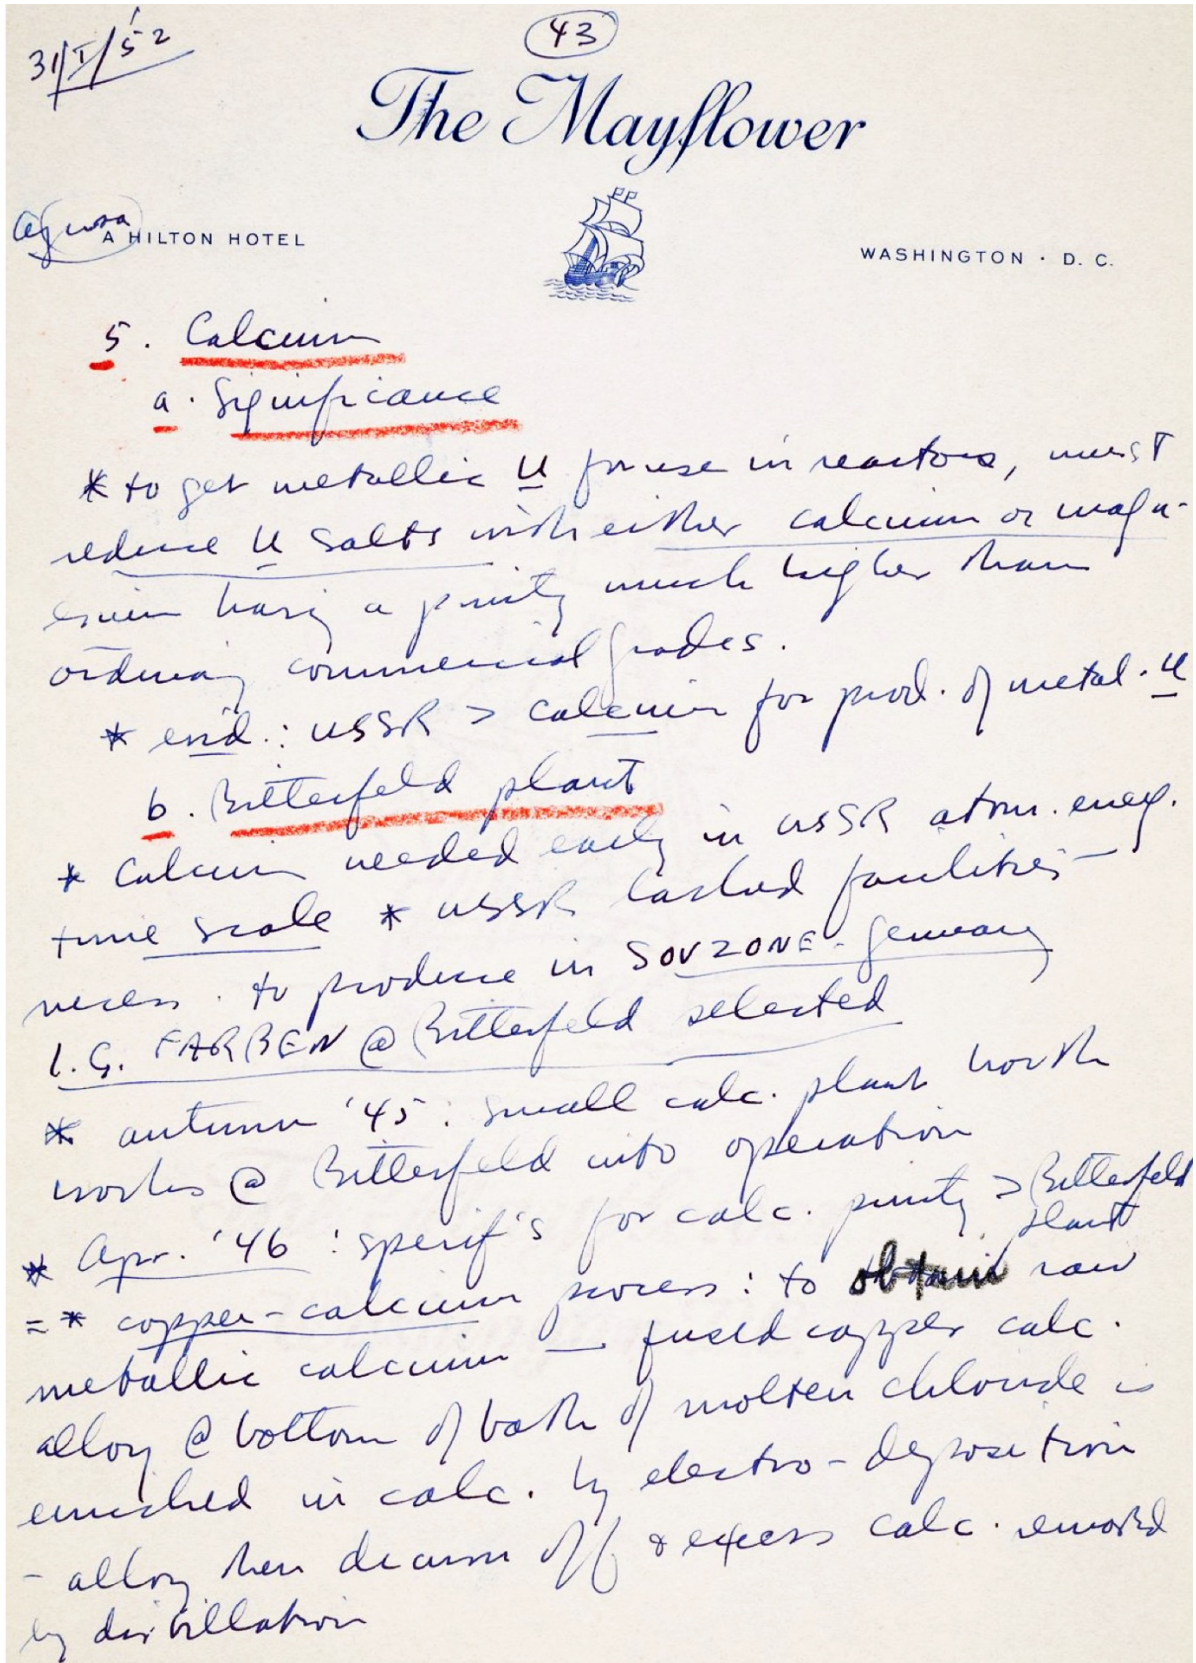 31/I/52
43
The Mayflower
A HILTON HOTEL
WASHINGTON · D. C.
5. Calcium
a. Significance
* to get metallic U for use in reactors, must
reduce U salts with either calcium or magn-
esium having a purity much higher than
ordinary commercial grades.
* evid.: USSR > calcium for prod. of metal. U
b. Bitterfeld plant
* Calcium needed early in USSR atom. energ.
time scale * USSR lacked facilities —
necess. to produce in SOVZONE - Germany
I.G. FARBEN @ Bitterfeld selected
* autumn '45: small calc. plant north
works @ Bitterfeld into operation
* Apr. '46: specif's for calc. purity > Bitterfeld
plant
= * copper-calcium process: to obtain raw
metallic calcium — fused copper calc.
alloy @ bottom of bath of molten chloride is
enriched in calc. by electro-deposition
- alloy then drawn off & excess calc. removed
by distillation